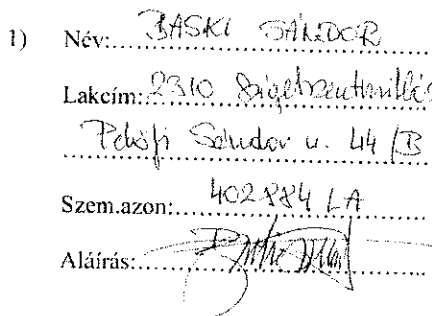 1) Név: BASKI SÁNDOR
Lakcím: 2310 Szigetszentmiklós
Petőfi Sándor u. 44/B
Szem.azon: 402884 LA
Aláírás: